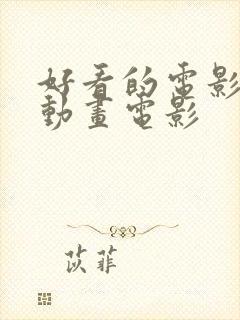 好看的電影
動畫電影
苡菲